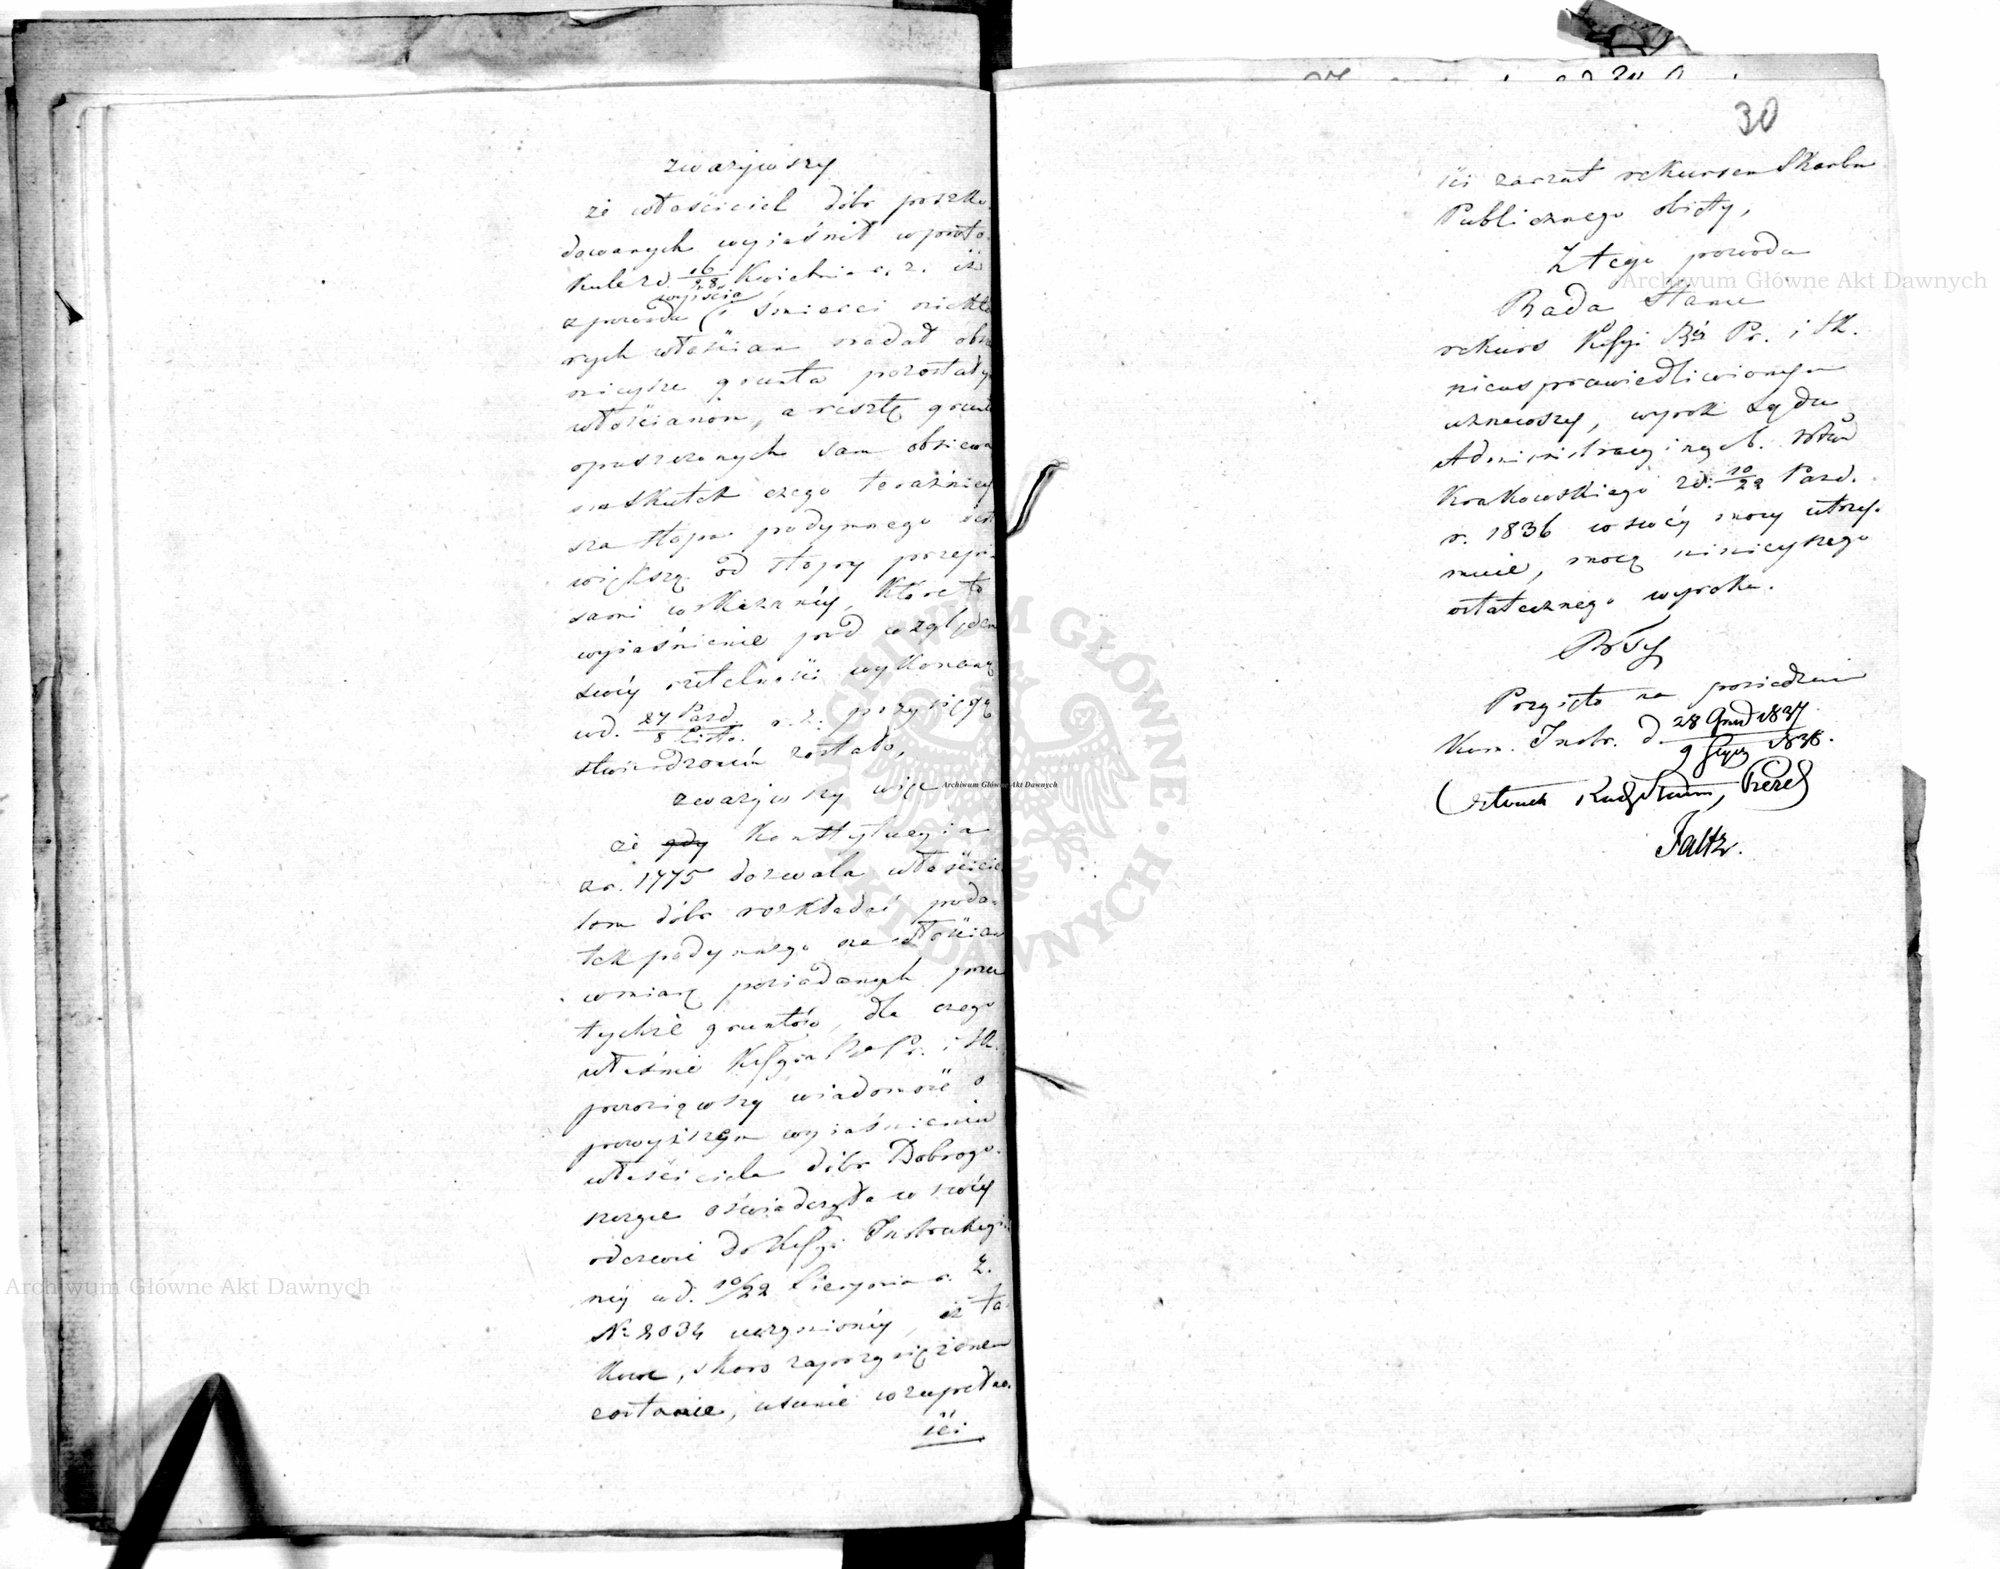 zważywszy
że właściciel dóbr poszko-
dowanych wyjaśnił w proto-
kule z d. 16/28 Kwietnia r. z. iż
z powodu wyjścia i śmierci niektó
rych włościan nadał obsz
niejsze grunta pozostały
włościanom, a resztę grunt
opuszczonych sam obsiewa
na skutek czego teraźniej
sza stopa podymnego jest
większą od stopy przepi-
sami wskazanéj, które to
wyjaśnienie pod względem
swéj rzetelności wykonaną
w d. 27 Pazd./8 Listo. r. z. przysięgą
stwierdzoném zostało,
zważywszy więc
że gdy Konstytucya
z r. 1775 dozwala właścicie
lom dóbr rozkładać poda-
tek podymnego na włościan
w miarę posiadanych przez
tychże gruntów, dla czego
właśnie Kssya Rz. Pr. i Sk.
powziąwszy wiadomość o
powyższem wyjaśnieniu
właściciela dóbr Dobrogo-
szczyce oświadczyła w swéj
odezwie do Kssyi Instrukcyi
néj z d. 10/22 Sierpnia r. z.
No 8034 uczynionéj, iż ta-
kowe, skoro zaprzysiężonem
zostanie, usunie w zupełno-
ści
30
ści zarzut rekursem Skarbu
Publicznego objęty,
Z tego powodu
Rada Stanu
rekurs Kssyi Rz. Pr. i Sk.
nieusprawiedliwionym
uznawszy, wyrok Sądu
Administracyjnego b. Wdztwa
Krakowskiego z d. 10/22 Pazd.
r. 1836 w swéj mocy utrzy-
muie, mocą niniejszego
ostatecznego wyroku.
Przyjęto na posiedzeniu
Kom. Instr. d. 28 Grud 1837/9 Stycz 1838.
Członek Rady Stanu, Prezes
Faltz.
Archiwum Główne Akt Dawnych
Archiwum Główne Akt Dawnych
Archiwum Główne Akt Dawnych
ARCHIWUM GŁÓWNE AKT DAWNYCH